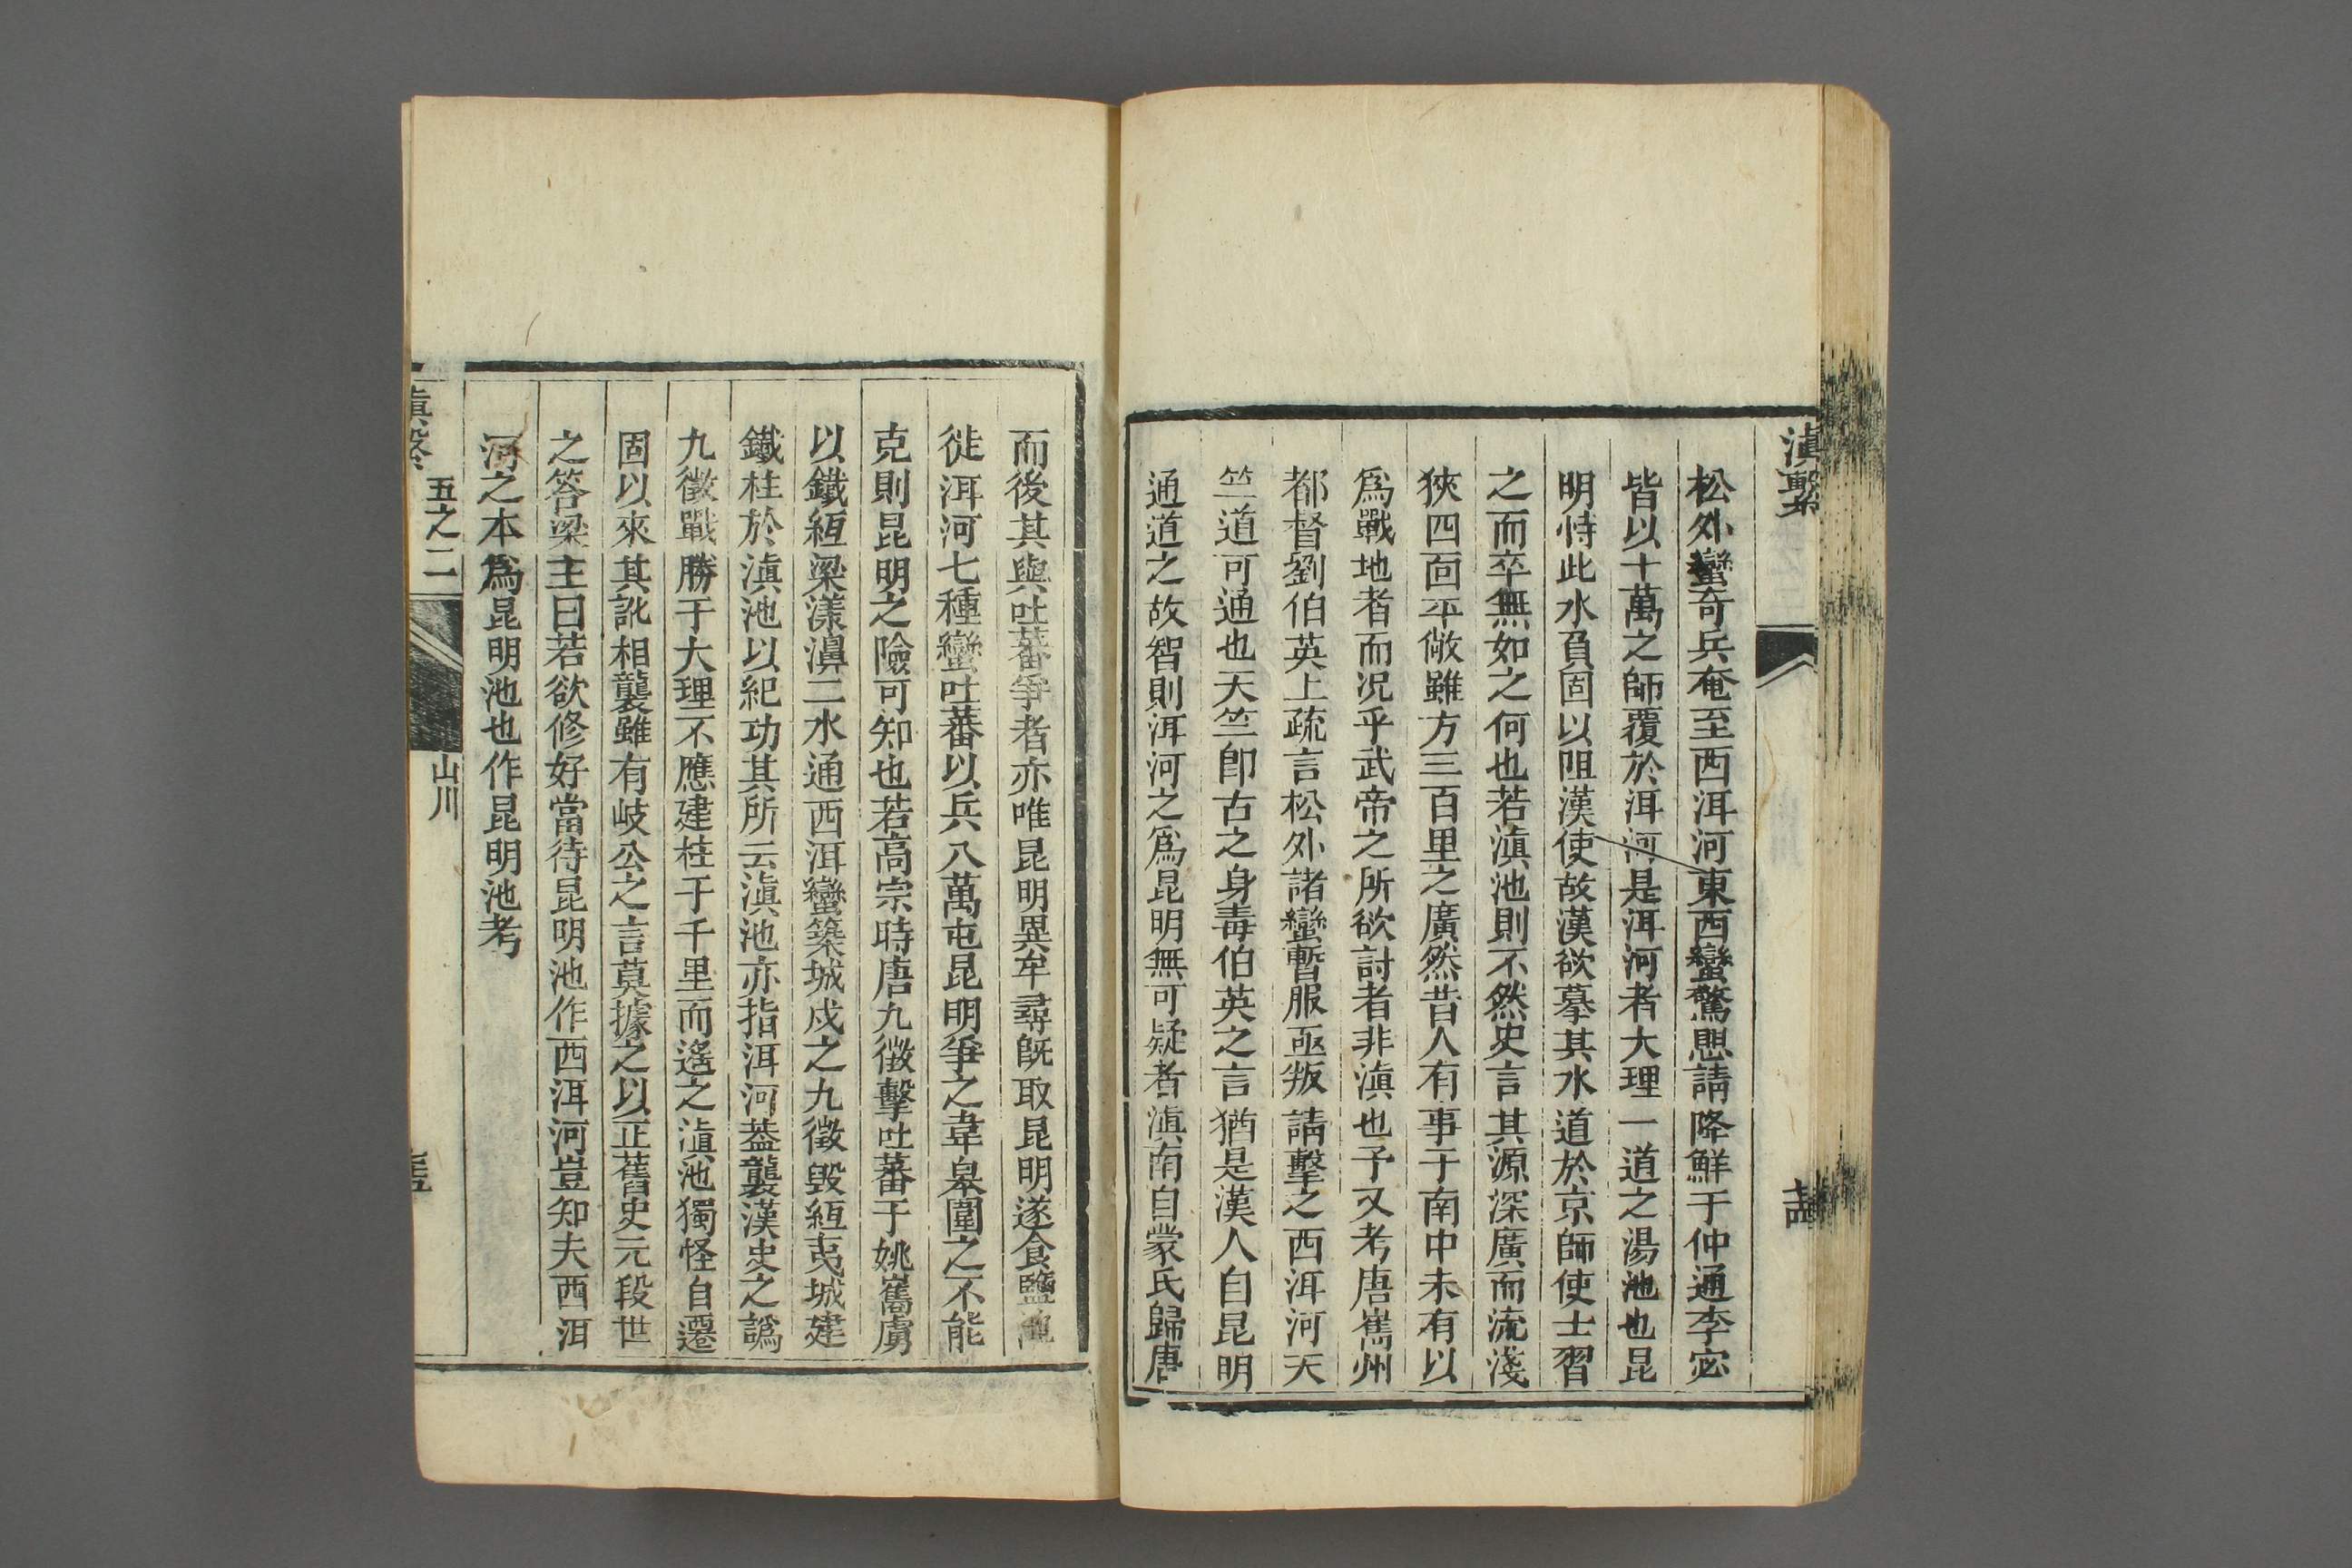 滇繫
松外蠻奇兵奄至西洱河東西蠻驚思請降鮮于仲通李宓
皆以十萬之師覆於洱河是洱河者大理一道之湯池也昆
明恃此水負固以阻漢使故漢欲摹其水道於京師使士習
之而卒無如之何也若滇池則不然史言其源深廣而流淺
狹四面平敞雖方三百里之廣然昔人有事于南中未有以
爲戰地者而況乎武帝之所欲討者非滇也予又考唐嶲州
都督劉伯英上疏言松外諸蠻暫服亟叛請擊之西洱河天
竺道可通也天竺卽古之身毒伯英之言猶是漢人自昆明
通道之故智則洱河之爲昆明無可疑者滇南自蒙氏歸唐
而後其與吐蕃爭者亦唯昆明異牟尋旣取昆明遂食鹽池
徙洱河七種蠻吐蕃以兵八萬屯昆明爭之韋皋圍之不能
克則昆明之險可知也若高宗時唐九徵擊吐蕃于姚嶲虜
以鐵絚梁漾濞二水通西洱蠻築城戍之九徵毀絚夷城建
鐵柱於滇池以紀功其所云滇池亦指洱河葢襲漢史之譌
九徵戰勝于大理不應建柱于千里而遙之滇池獨怪自遷
固以來其訛相襲雖有岐公之言莫據之以正舊史元段世
之答梁主曰若欲修好當待昆明池作西洱河豈知夫西洱
河之本爲昆明池也作昆明池考
五之二
山川